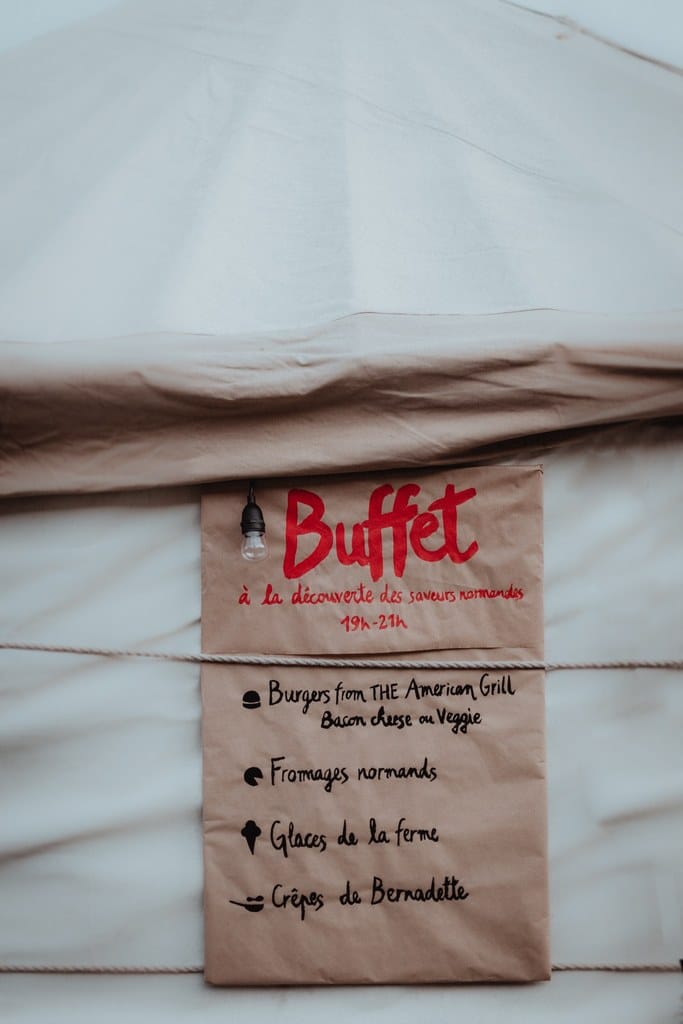 Buffet
à la découverte des saveurs normandes
19h-21h
Burgers from THE American Grill
Bacon cheese ou Veggie
Fromages normands
Glaces de la ferme
Crêpes de Bernadette